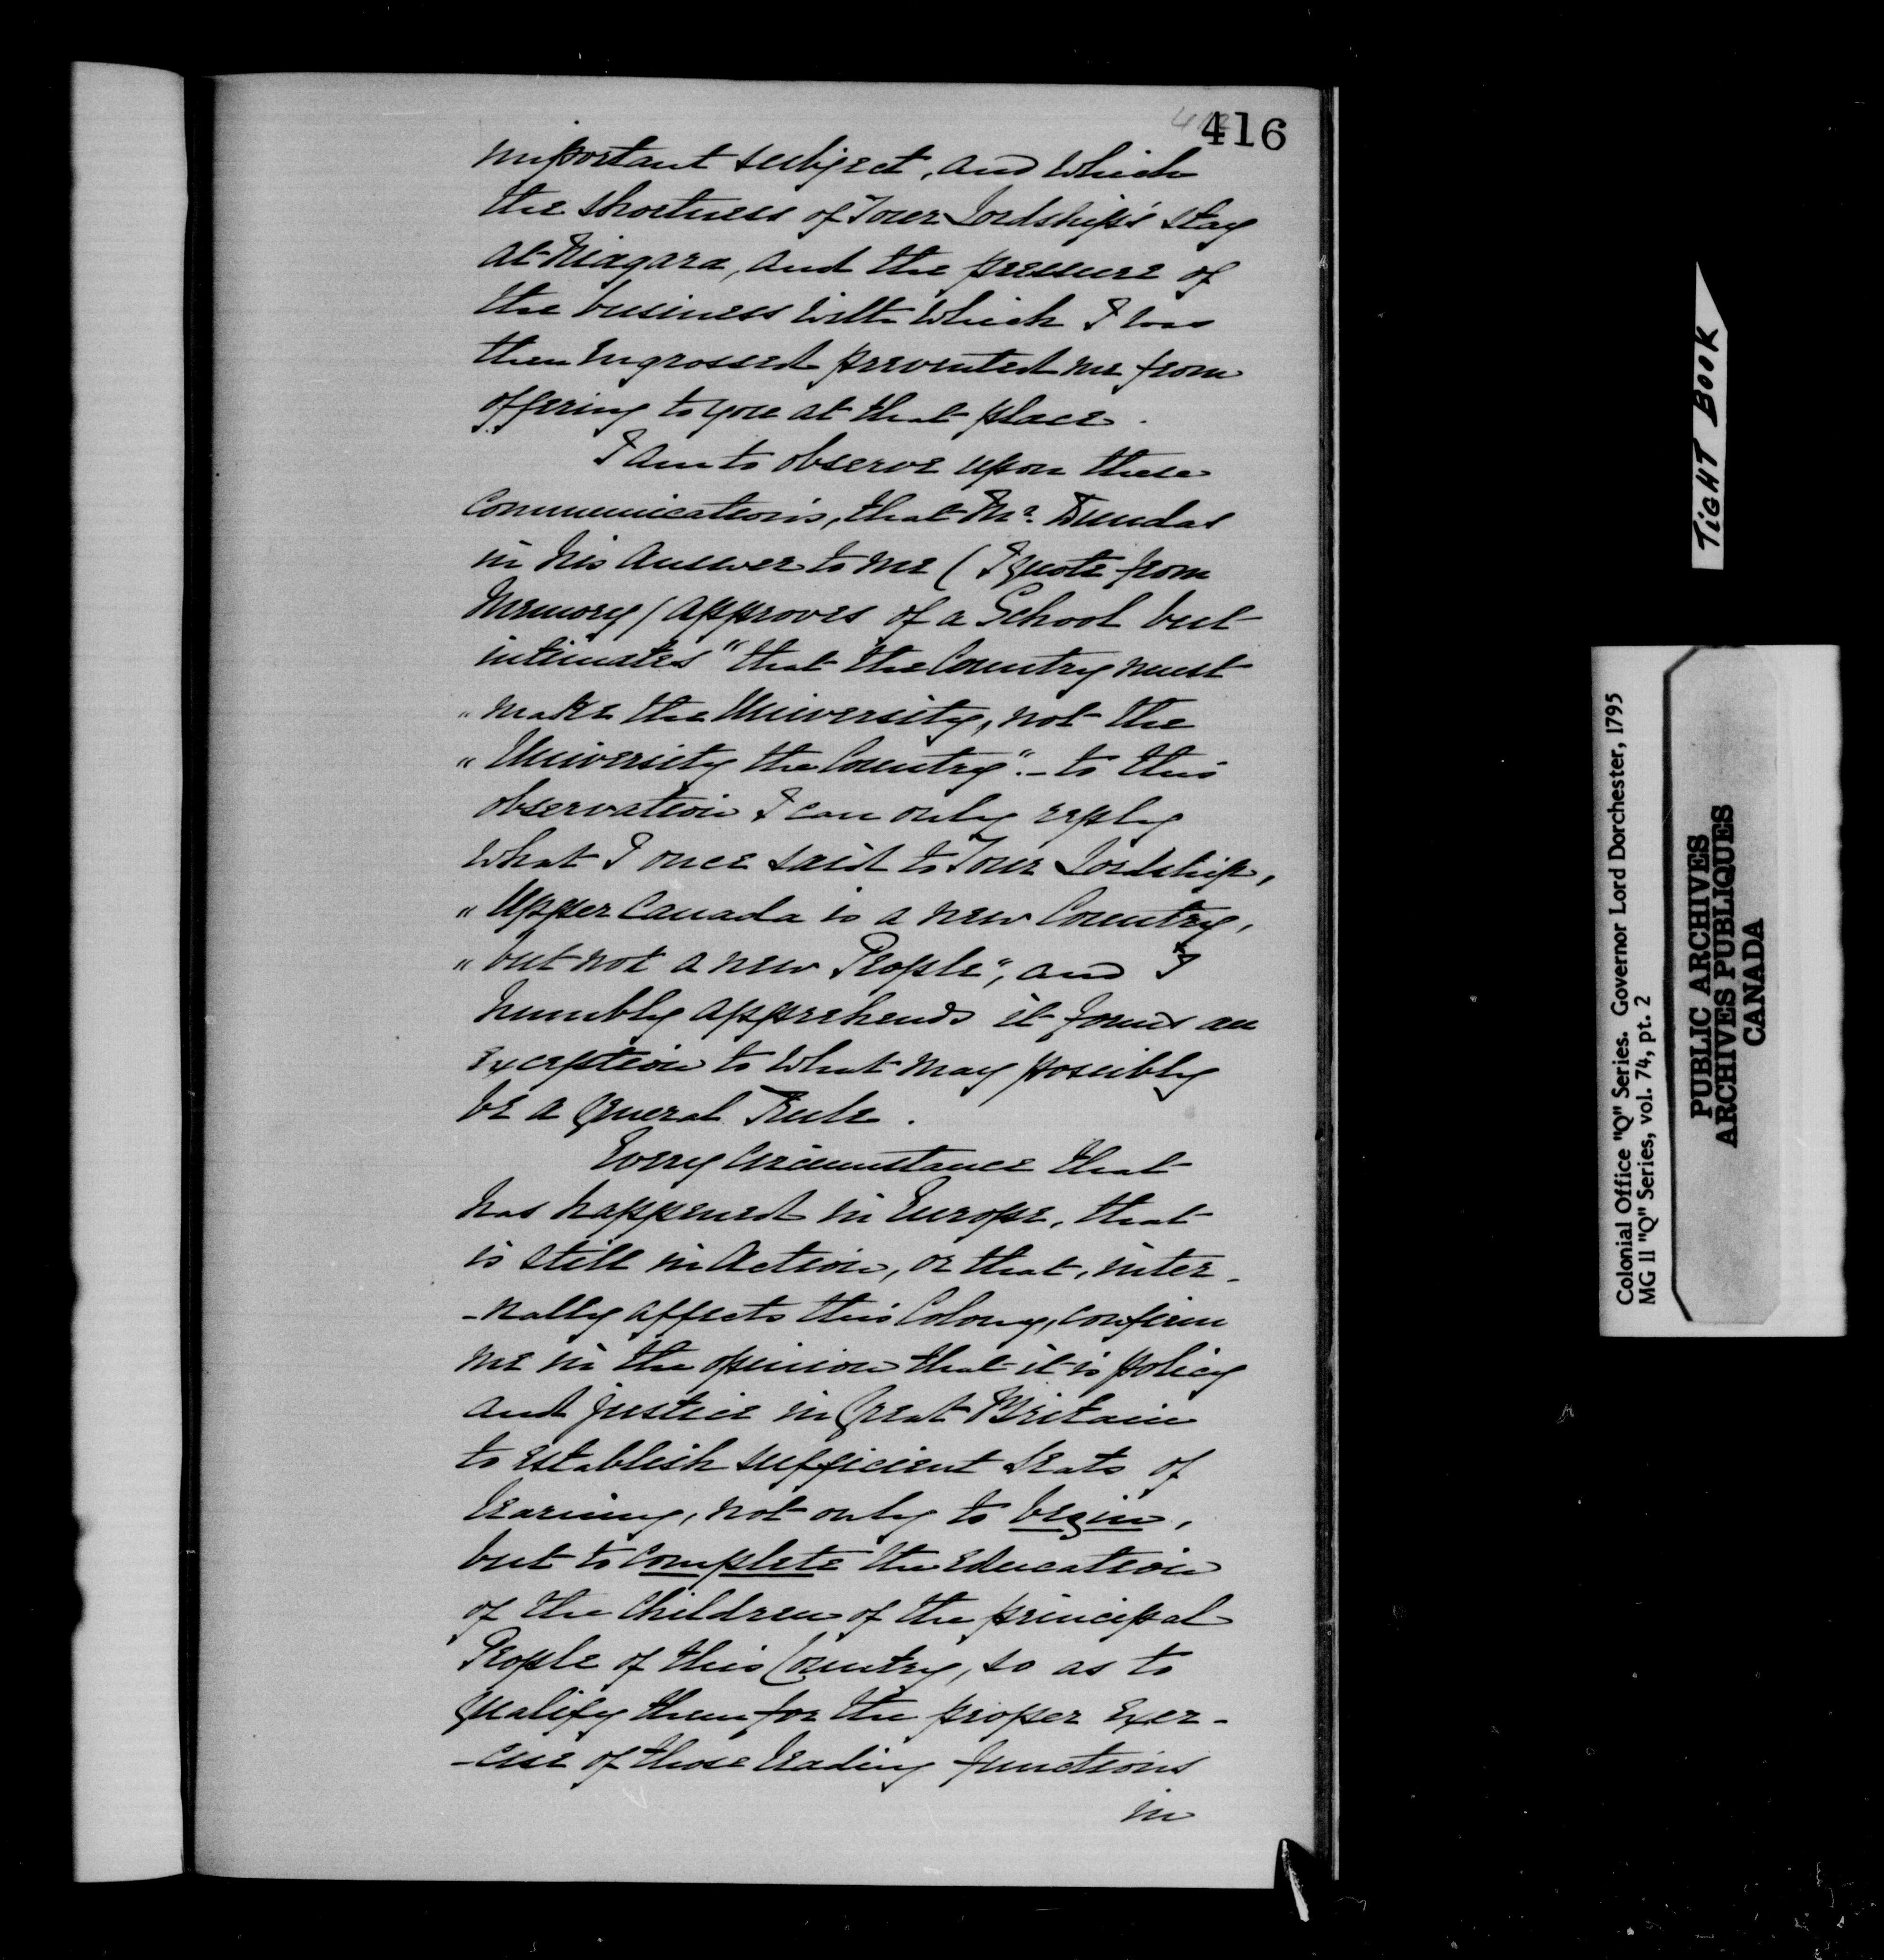 416
important subject, and which
the shortness of Your Lordship's stay
at Niagara, and the pressure of
the business with which I was
then engrossed prevented me from
offering to you at that place.
I am to observe upon these
Communications, that Mr. Dundas
in his answer to me (I quote from
Memory) approves of a School but
intimates "that the Country must
"make the University, not the
"University the Country". - to this
observation I can only reply
what I once said to Your Lordship,
"Upper Canada is a new Country,
"but not a new People", and I
humbly apprehends it forms an
exception to what may possibly
be a general Rule.
Every Circumstance that
has happened in Europe, that
is still in Action, or that, inter-
-nally affects this Colony, confirm
me in the opinion that it is policy
and justice in Great Britain
to establish sufficient Seats of
learning, not only to begin,
but to complete the Education
of the Children of the principal
People of this Country, so as to
qualify them for the proper exer-
-cise of those leading functions
in
TIGHT BOOK
Colonial Office "Q" Series. Governor Lord Dorchester, 1795
MG 11 "Q" Series, vol. 74, pt. 2
PUBLIC ARCHIVES
ARCHIVES PUBLIQUES
CANADA